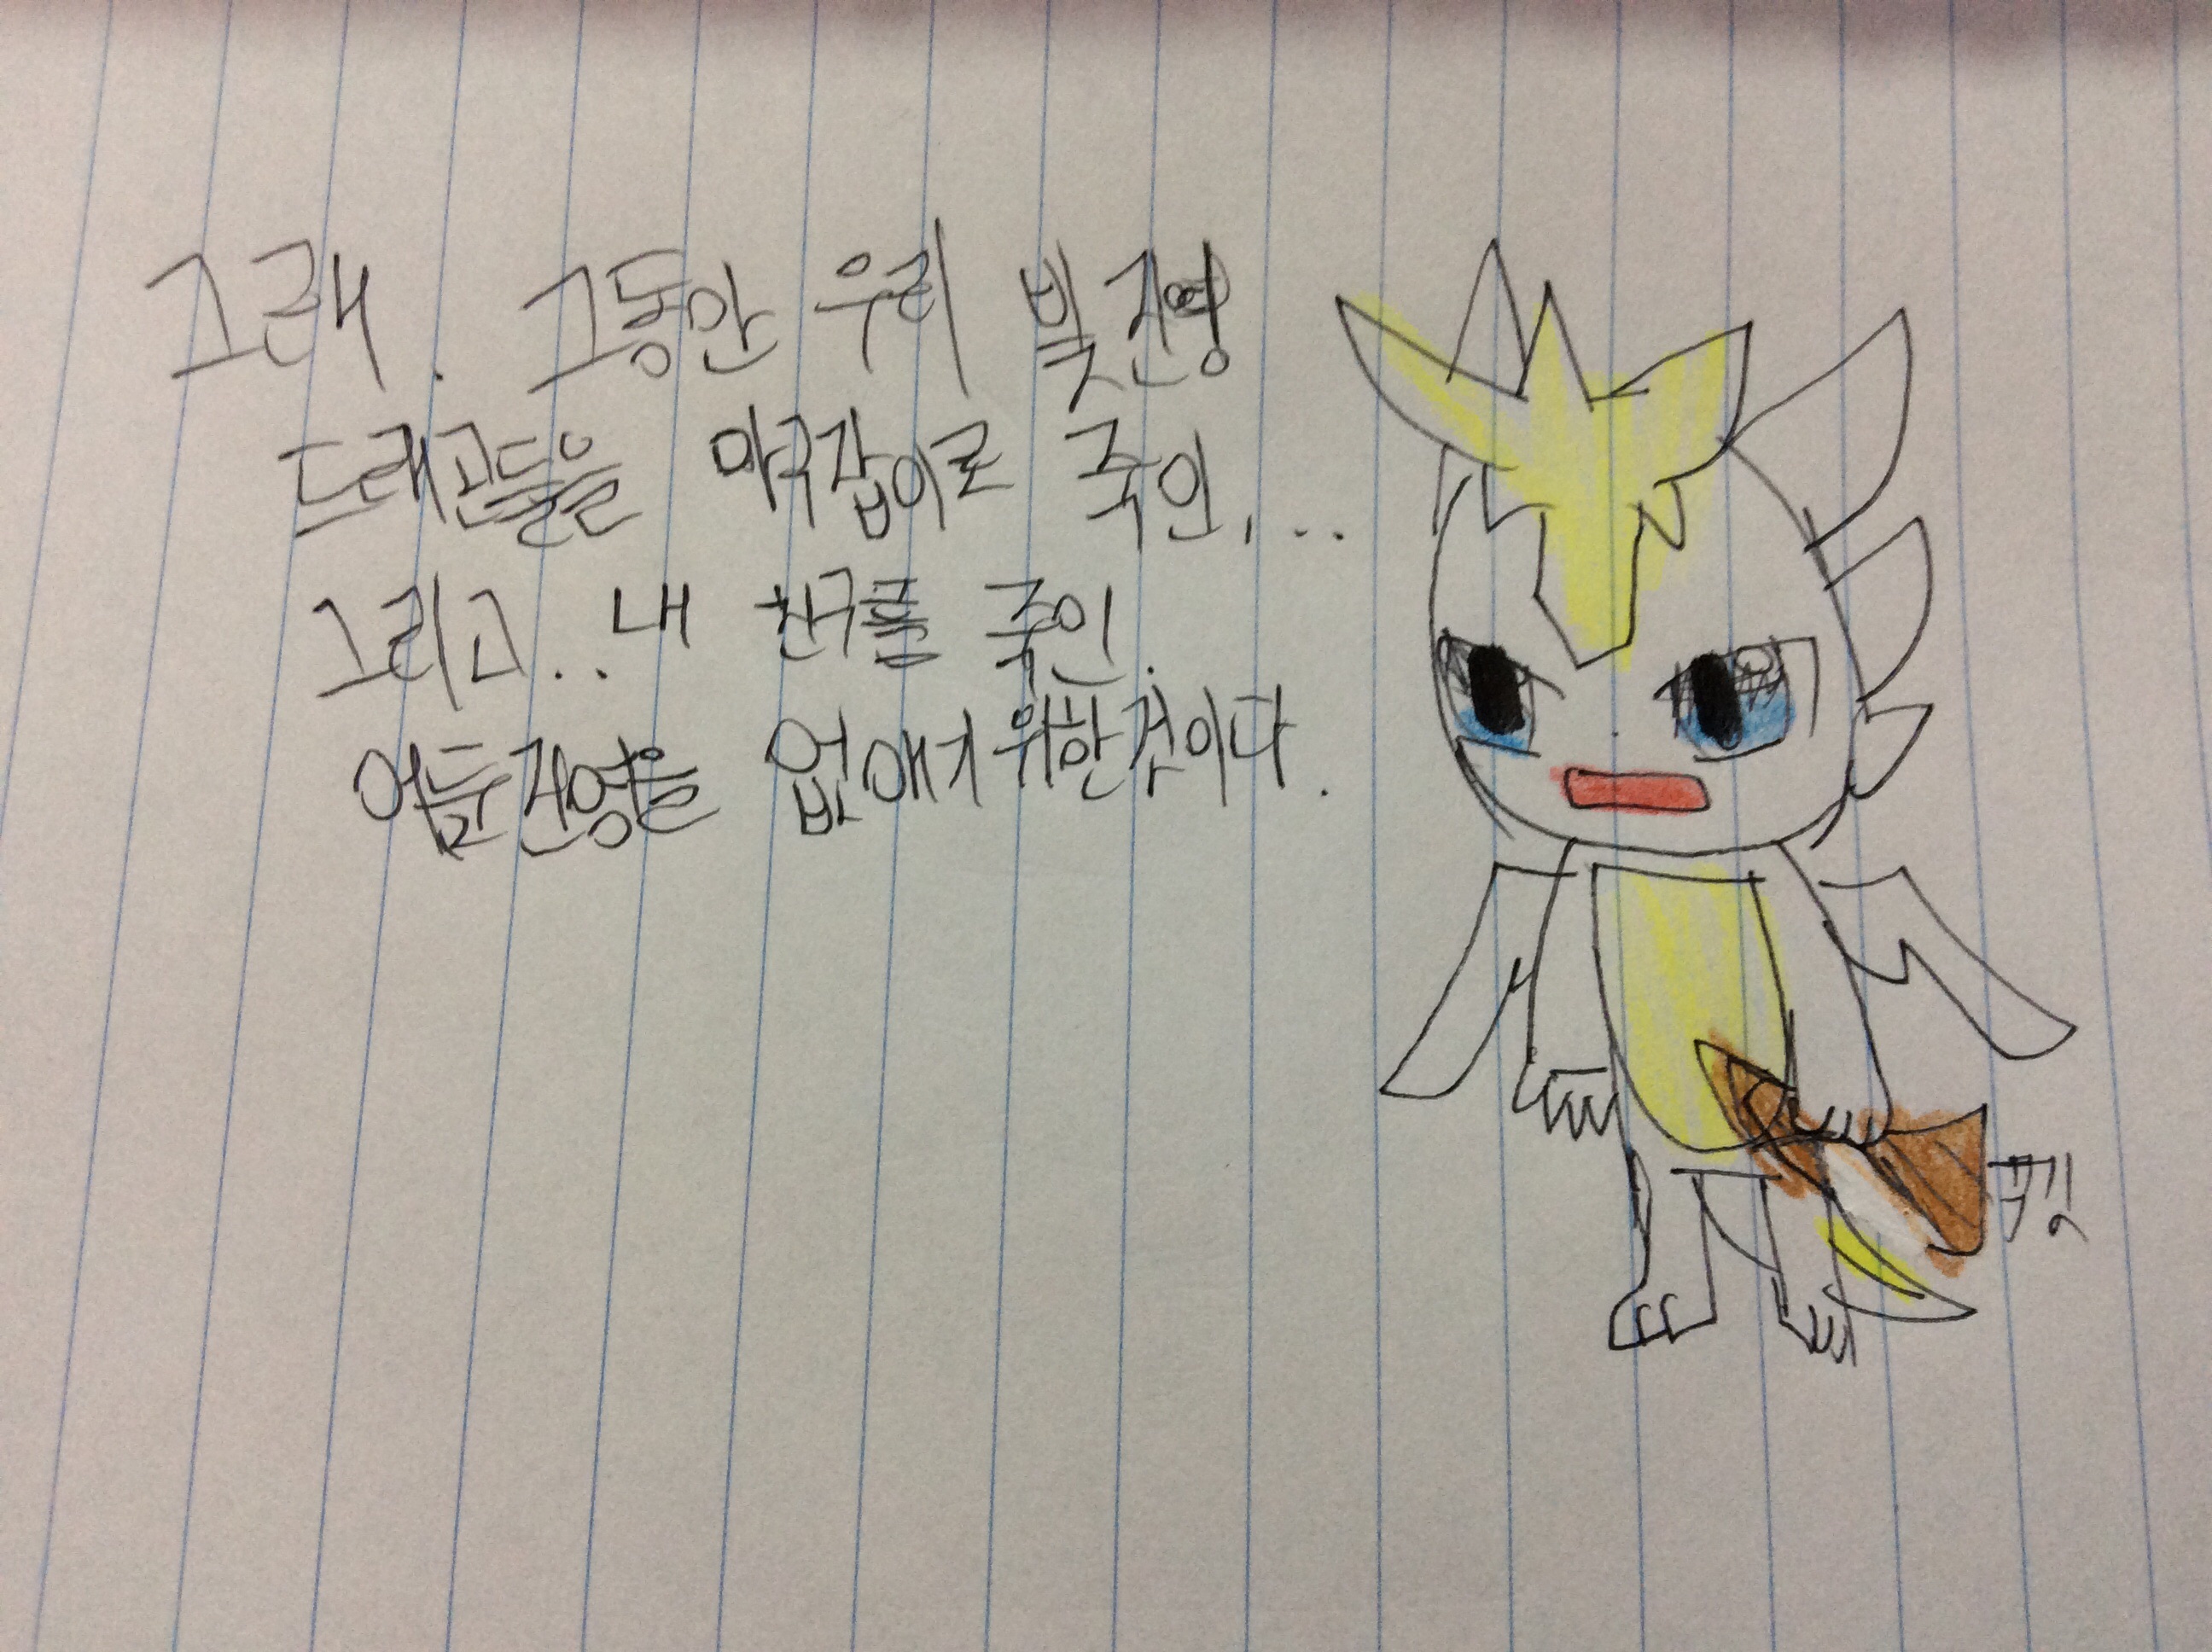 그래. 그동안 우리 빛진영
드래곤들을 마구잡이로 죽인...
그리고.. 내 친구를 죽인.
어둠진영을 없애기 위한것이다.